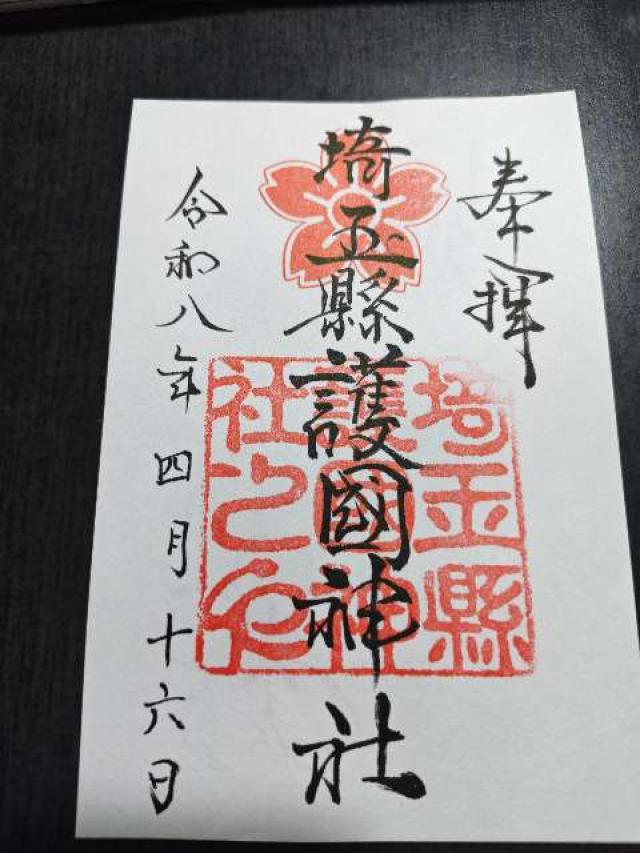 奉拝
埼玉縣護國神社
埼玉縣
護國神
社之印
令和八年四月十六日